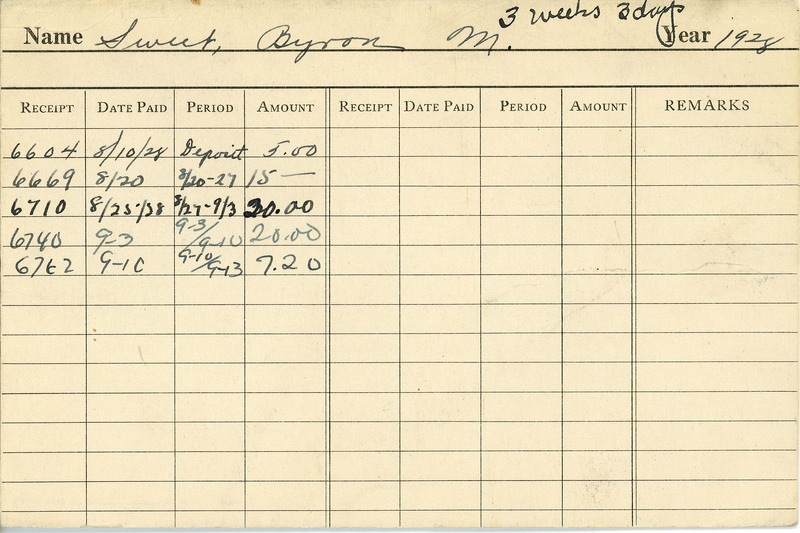 3 weeks 3 days
Name Sweet, Byron M. Year 1928
RECEIPT DATE PAID PERIOD AMOUNT RECEIPT DATE PAID PERIOD AMOUNT REMARKS
6604 8/10/28 Deposit 5.00
6669 8/20 8/20-27 15 —
6710 8/25/28 8/27-9/3 20.00
6740 9-3 9-3/9-10 20.00
6762 9-10 9-10/9-13 7.20